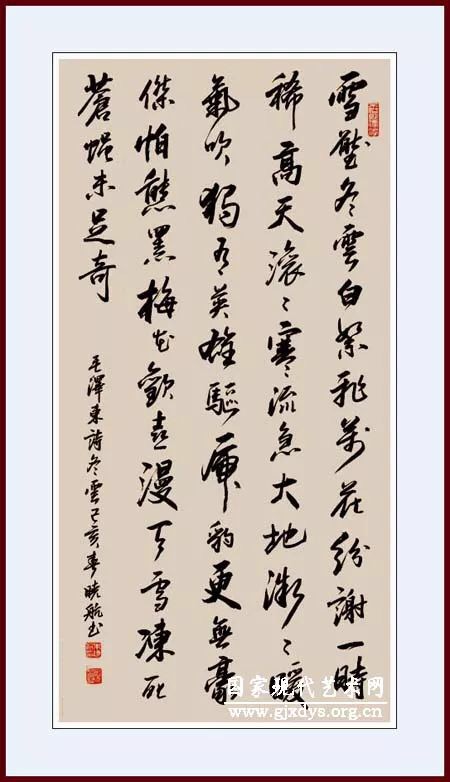 雪壓冬雲白絮飛萬花紛謝一時
稀高天滾〻寒流急大地微〻暖
氣吹獨有英雄驅虎豹更無豪
傑怕熊羆梅花歡喜漫天雪凍死
蒼蠅未足奇
毛澤東詩冬雲己亥春曉航書
国家现代艺术网
www.gjxdys.org.cn